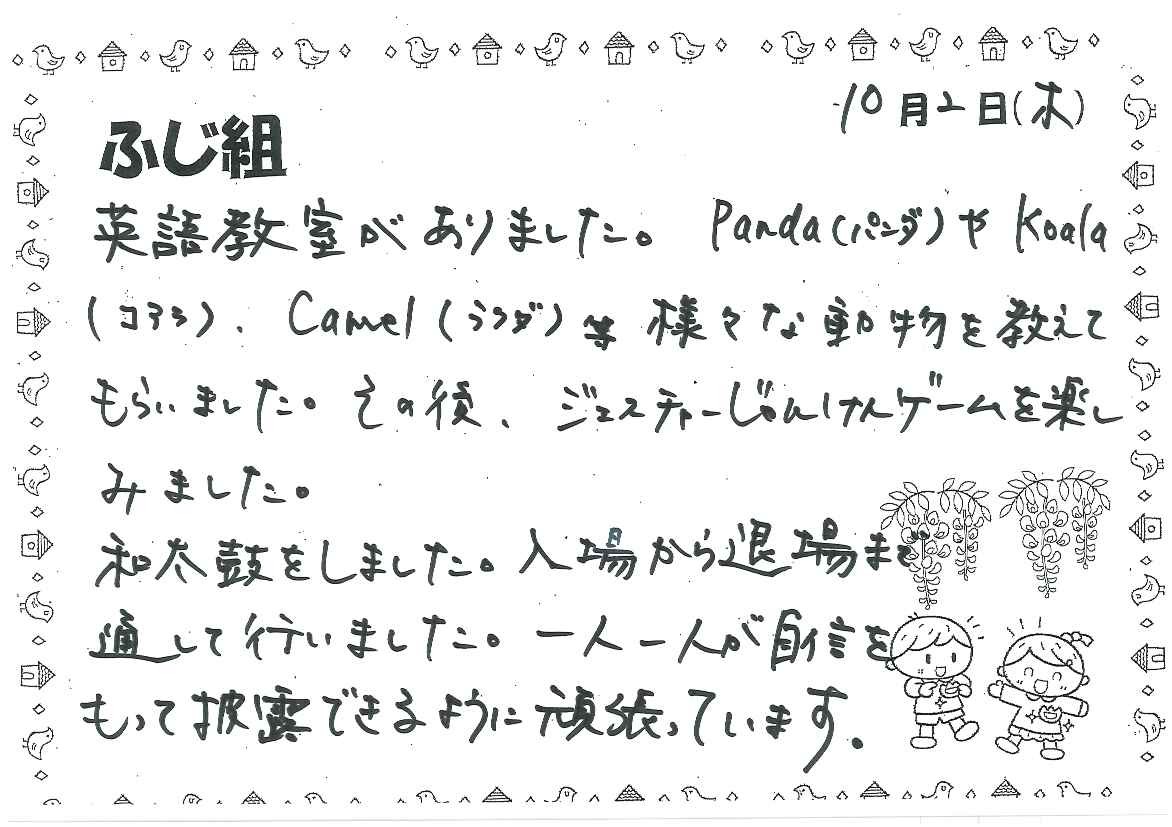 10月2日(木)
ふじ組
英語教室がありました。Panda(パンダ)や Koala
(コアラ)、Camel(ラクダ)等 様々な動物を教えて
もらいました。その後、ジェスチャーじゃんけんゲームを楽し
みました。
和太鼓をしました。入場から退場まで
通して行いました。一人一人が自信を
もって披露できるように頑張っています。